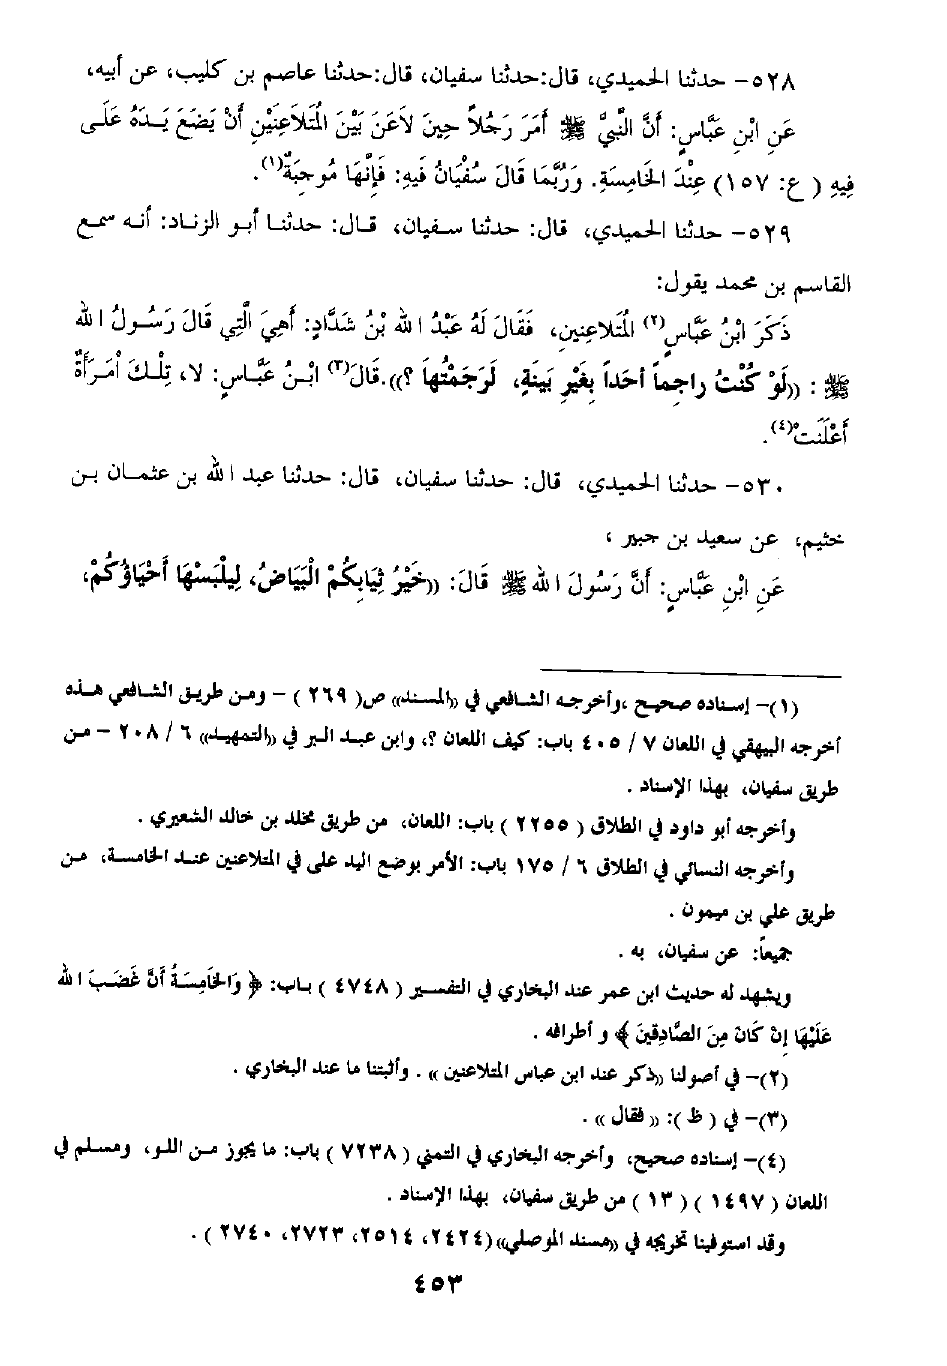 ٥٢٨- حدثنا الحميدي، قال:حدثنا سفيان، قال:حدثنا عاصم بن كليب، عن أبيه،
عَنِ ابْنِ عَبَّاسٍ: أَنَّ النَّبِيَّ ﷺ أَمَرَ رَجُلاً حِينَ لاَعَنَ بَيْنَ الْمُتَلاَعِنَيْنِ أَنْ يَضَعَ يَدَهُ عَلَى
فِيهِ ( ع: ١٥٧) عِنْدَ الخَامِسَةِ. وَرُبَّمَا قَالَ سُفْيَانُ فَيهِ: فَإِنَّهَا مُوجِبَةٌ(١).
٥٢٩- حدثنا الحميدي، قال: حدثنا سفيان، قال: حدثنا أبو الزناد: أنه سمع
القاسم بن محمد يقول:
ذَكَرَ ابْنُ عَبَّاسٍ(٢) الْمُتَلاعِنِينِ، فَقَالَ لَهُ عَبْدُ اللهِ بْنُ شَدَّادٍ: أَهِيَ الَّتِي قَالَ رَسُولُ اللهِ
ﷺ : ((لَوْ كُنْتُ راجِماً أحَداً بِغَيْرِ بَيِّنَةٍ، لَرَجَمْتُهَا ؟)).قَالَ(٣) ابْنُ عَبَّاسٍ: لا، تِلْكَ أمْرَأَةٌ
أَعْلَنَتْ(٤).
٥٣٠- حدثنا الحميدي، قال: حدثنا سفيان، قال: حدثنا عبد الله بن عثمان بن
خثيم، عن سعيد بن جبير ،
عَنِ ابْنِ عَبَّاسٍ: أَنَّ رَسُولَ اللهِ ﷺ قَالَ: ((خَيْرُ ثِيَابِكُمْ الْبَيَاضُ، لِيَلْبَسْهَا أَحْيَاؤُكُمْ،
(١)- إسناده صحيح ،وأخرجه الشافعي في ((المسند)) ص( ٢٦٩ ) - ومن طريق الشافعي هذه
أخرجه البيهقي في اللعان ٧ / ٤٠٥ باب: كيف اللعان ؟، وابن عبد البر في ((التمهيد)) ٦ / ٢٠٨ - من
طريق سفيان، بهذا الإسناد .
وأخرجه أبو داود في الطلاق ( ٢٢٥٥ ) باب: اللعان، من طريق مخلد بن خالد الشعيري .
وأخرجه النسائي في الطلاق ٦ / ١٧٥ باب: الأمر بوضع اليد على في المتلاعنين عند الخامسة، من
طريق علي بن ميمون .
جميعاً: عن سفيان، به .
ويشهد له حديث ابن عمر عند البخاري في التفسير ( ٤٧٤٨ ) باب: ﴿ وَالخَامِسَةُ أَنَّ غَضَبَ اللهِ
عَلَيْهَا إِنْ كَانَ مِنَ الصَّادِقِينَ ﴾ و أطرافه .
(٢)- في أصولنا ((ذكر عند ابن عباس المتلاعنين )) . وأثبتنا ما عند البخاري .
(٣)- في ( ظ ): (( فقال )) .
(٤)- إسناده صحيح، وأخرجه البخاري في التمني ( ٧٢٣٨ ) باب: ما يجوز من اللو، ومسلم في
اللعان ( ١٤٩٧ ) ( ١٣ ) من طريق سفيان، بهذا الإسناد .
وقد استوفينا تخريجه في ((مسند الموصلي))(٢٤٢٤، ٢٥١٤، ٢٧٢٣، ٢٧٤٠ ) .
٤٥٣